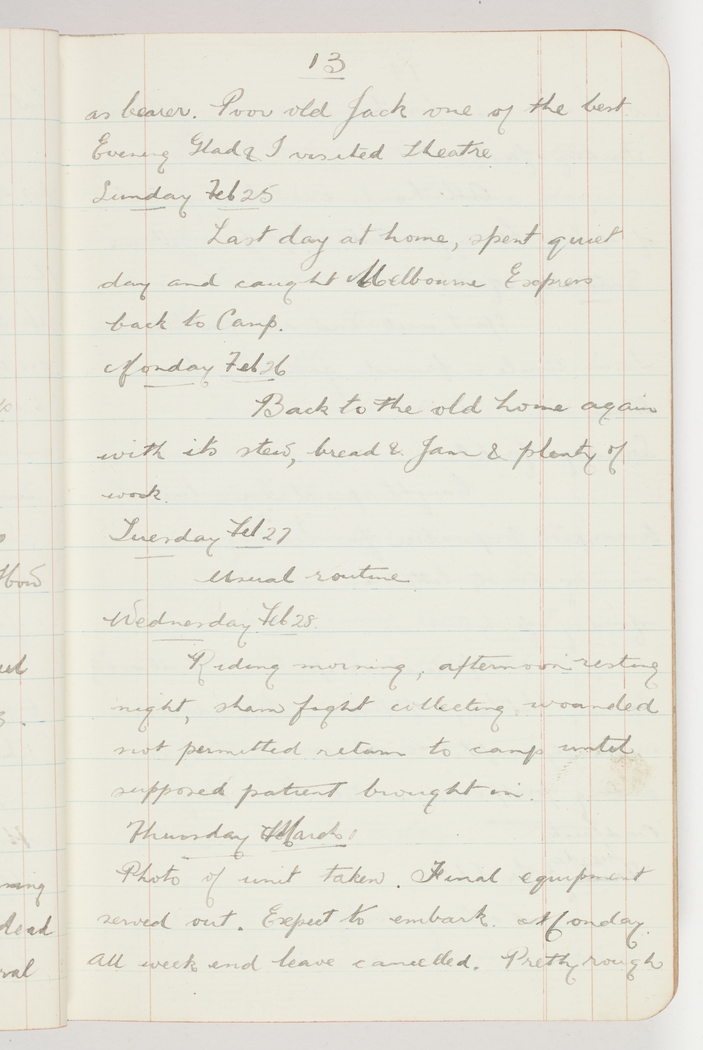 13
as bearer. Poor old Jack one of the best
Evening Glad & I visited theatre
Sunday Feb 25
Last day at home, spent quiet
day and caught Melbourne Express
back to Camp.
Monday Feb 26
Back to the old home again
with its stew, bread & Jam & plenty of
work.
Tuesday Feb 27
Usual routine
Wednesday Feb 28
Riding morning, afternoon resting
night, sham fight collecting wounded
not permitted return to camp until
supposed patient brought in.
Thursday March 1
Photo of unit taken. Final equipment
served out. Expect to embark Monday.
All week end leave cancelled. Pretty rough
ning
dead